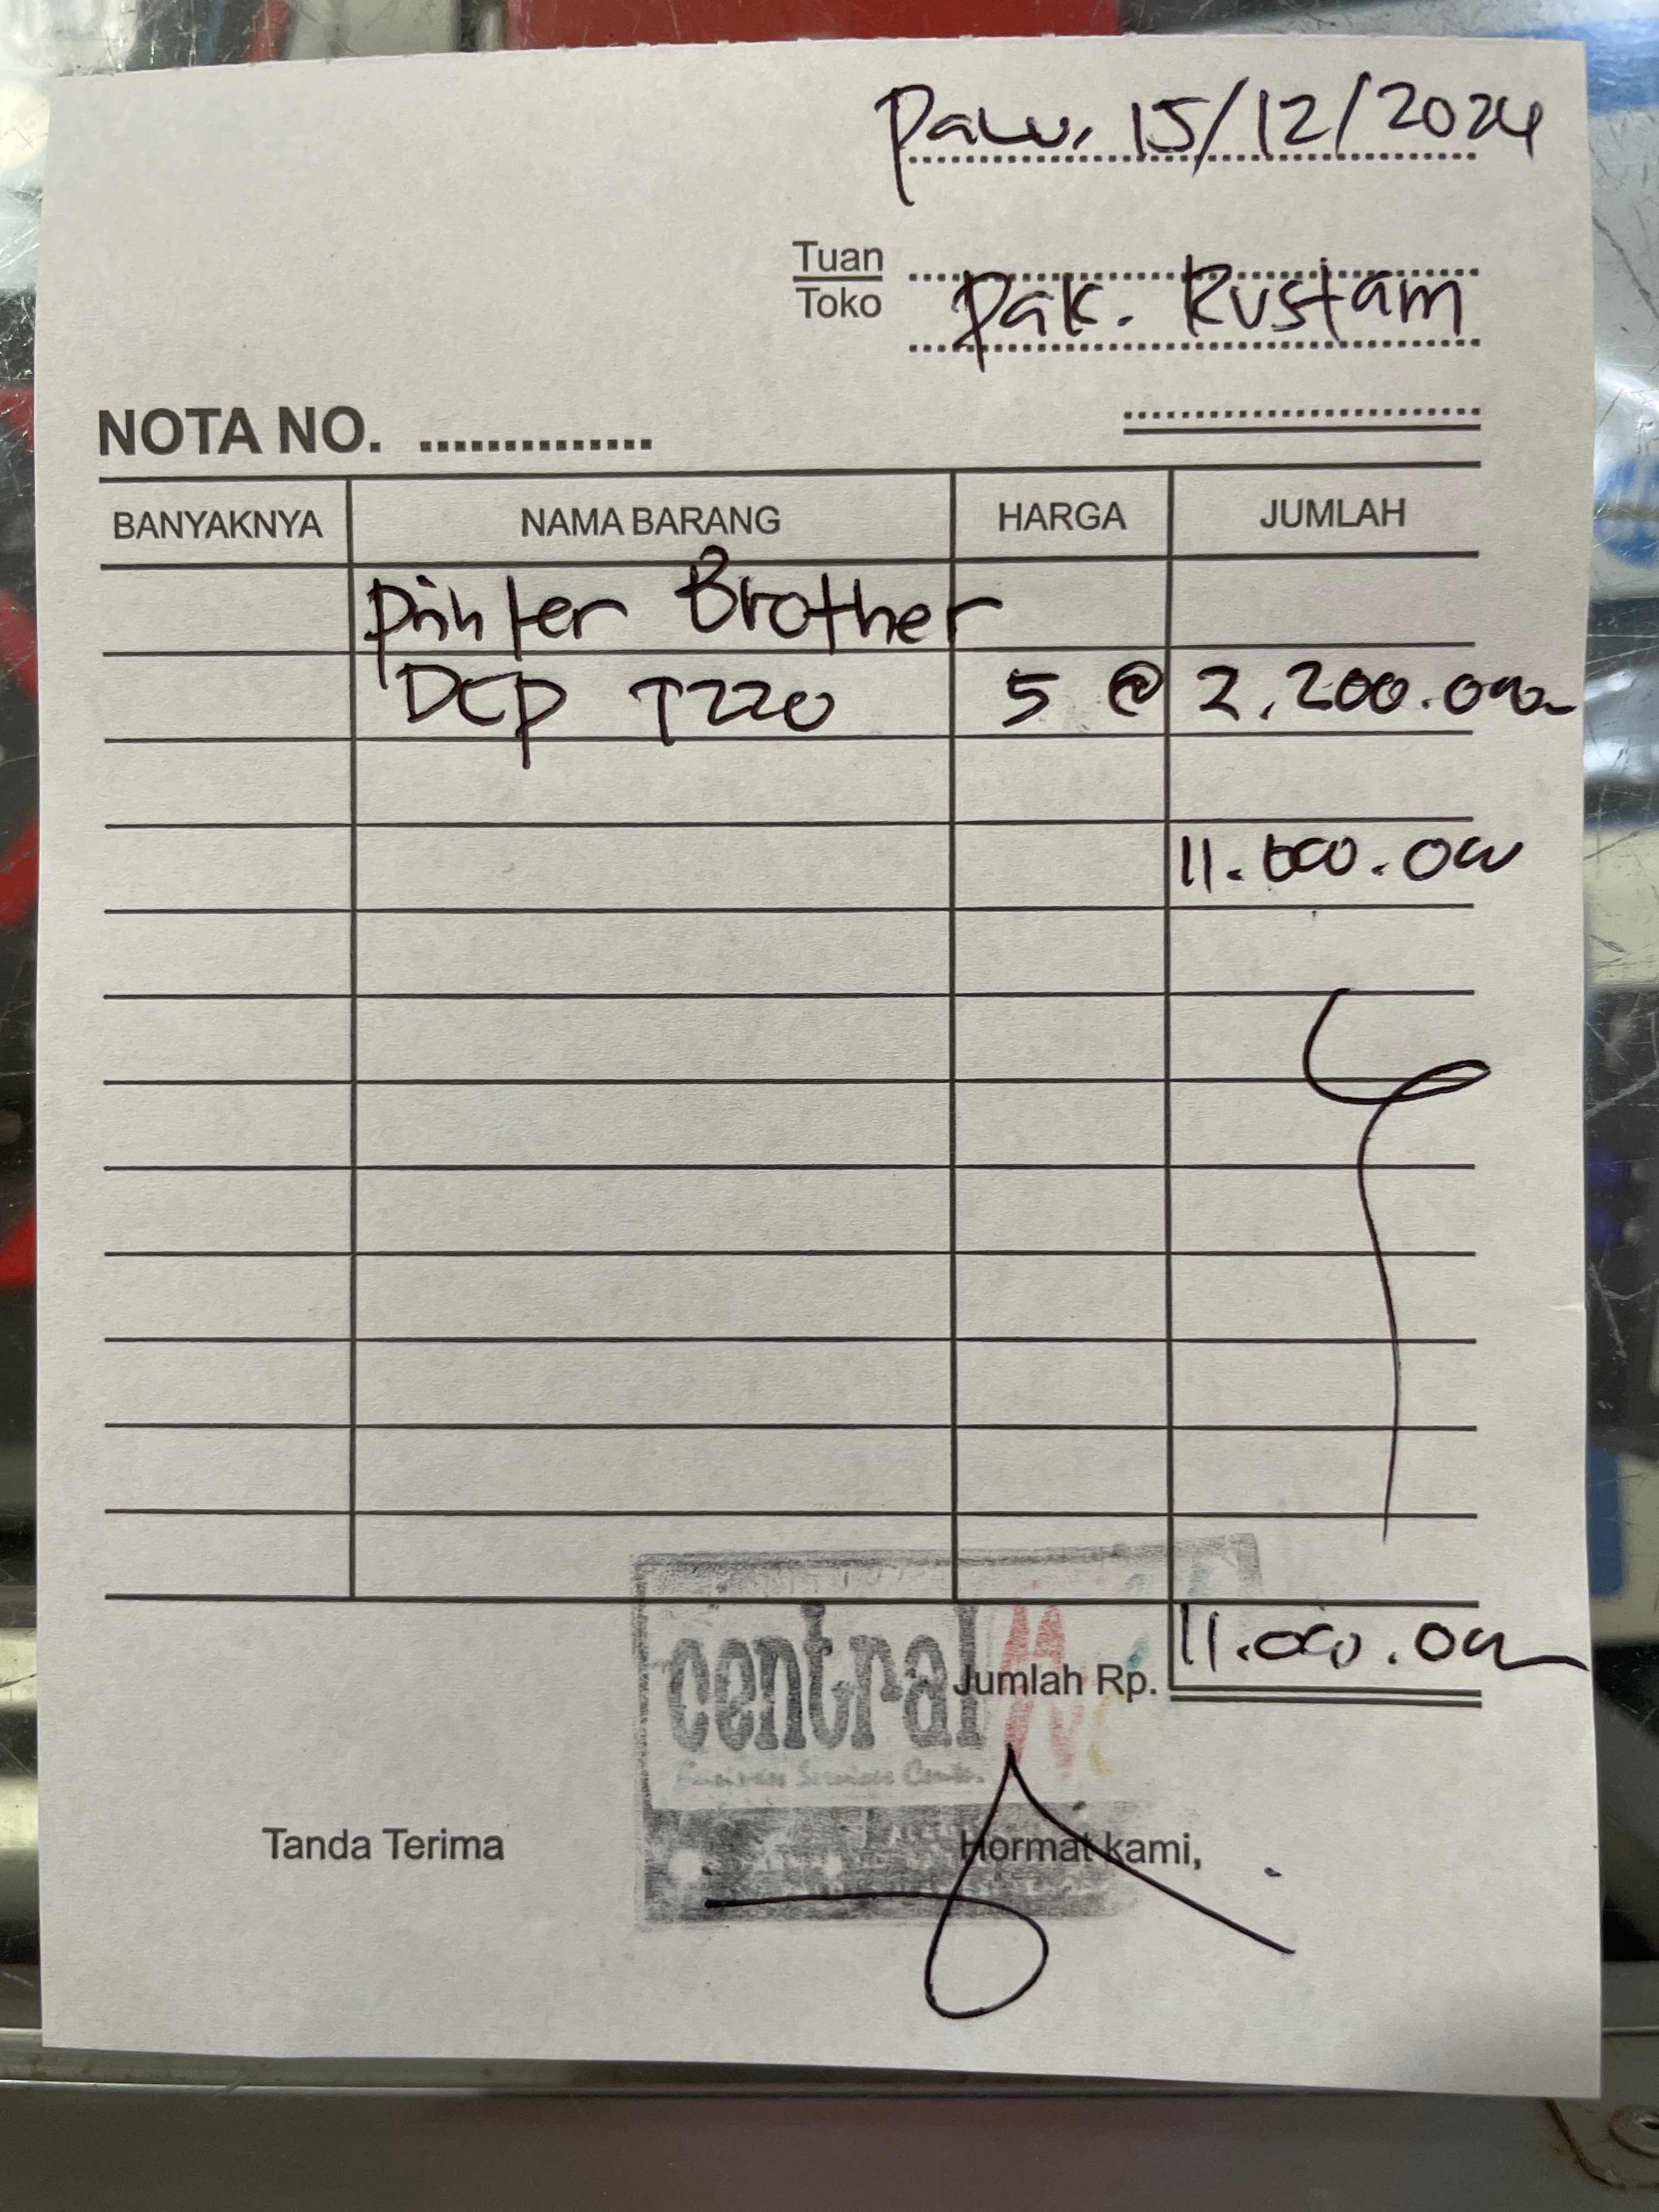 Palu, 15/12/2024
Tuan
Toko
Pak. Rustam
NOTA NO. ..............
BANYAKNYA NAMA BARANG HARGA JUMLAH
Printer Brother
DCP T220 5 @ 2.200.000
11.000.000
Jumlah Rp. 11.000.000
central
Business Services Center
Tanda Terima Hormat kami,